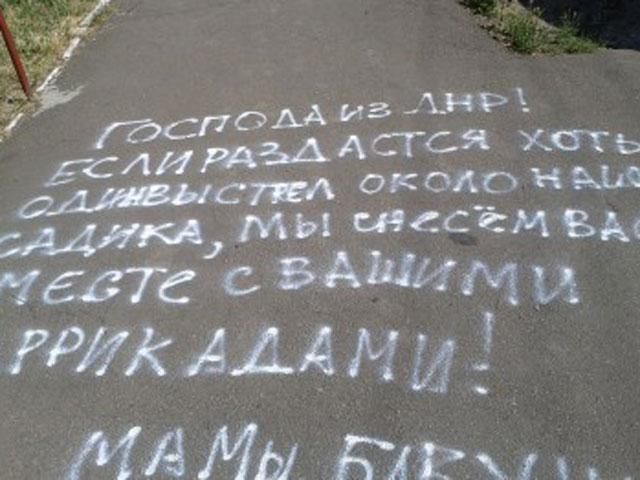 ГОСПОДА ИЗ ЛНР!
ЕСЛИ РАЗДАСТСЯ ХОТЬ
ОДИН ВЫСТРЕЛ ОКОЛО
САДИКА, МЫ СНЕСЁМ ВАС
МЕСТЕ С ВАШИМИ
РРИКАДАМИ!
МАМЫ